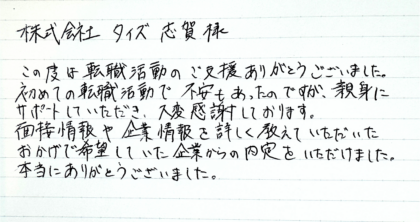 株式会社 タイズ 志賀様
この度は転職活動のご支援ありがとうございました。
初めての転職活動で不安もあったのですが、親身に
サポートしていただき、大変感謝しております。
面接情報や企業情報を詳しく教えていただいた
おかげで希望していた企業からの内定をいただけました。
本当にありがとうございました。